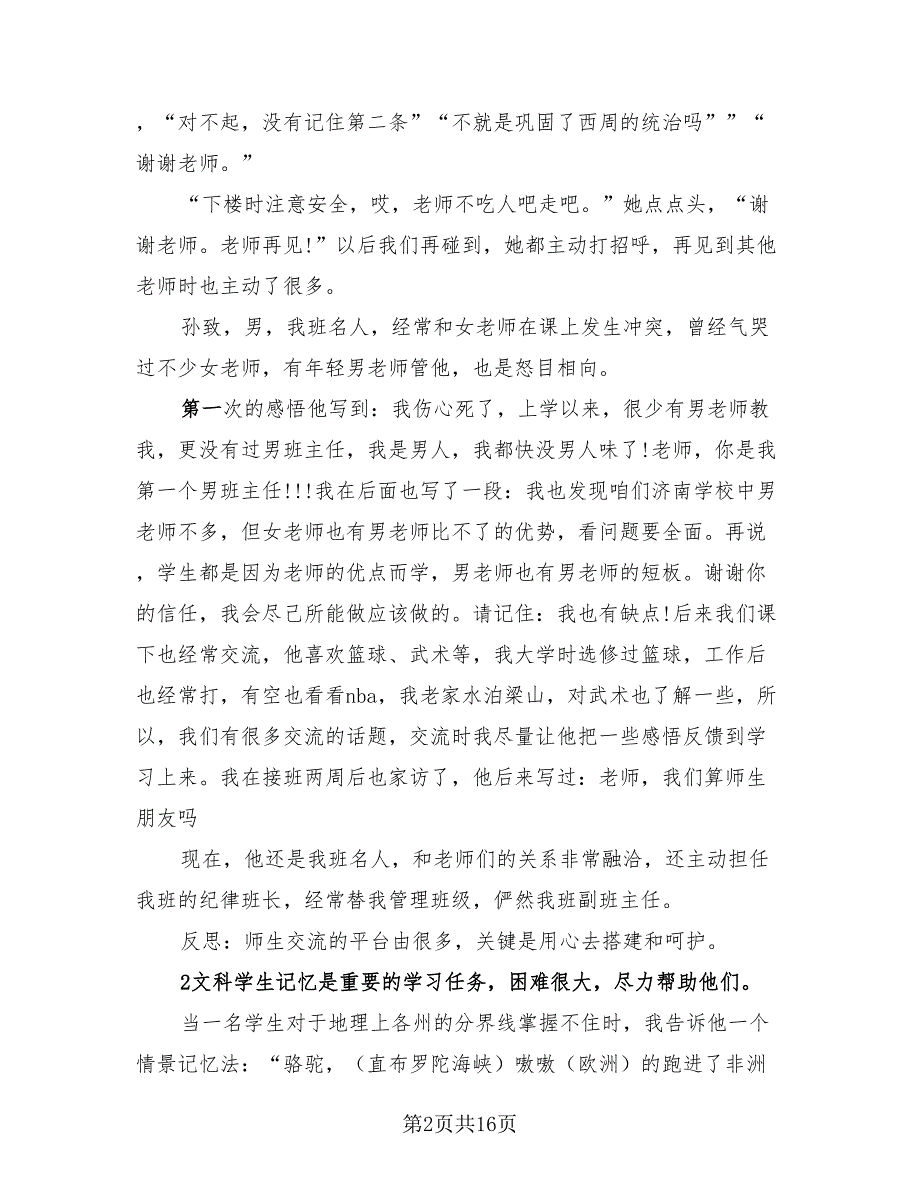 ，“对不起，没有记住第二条”“不就是巩固了西周的统治吗””“
谢谢老师。”
“下楼时注意安全，哎，老师不吃人吧走吧。”她点点头，“谢
谢老师。老师再见!”以后我们再碰到，她都主动打招呼，再见到其他
老师时也主动了很多。
孙致，男，我班名人，经常和女老师在课上发生冲突，曾经气哭
过不少女老师，有年轻男老师管他，也是怒目相向。
第一次的感悟他写到：我伤心死了，上学以来，很少有男老师教
我，更没有过男班主任，我是男人，我都快没男人味了!老师，你是我
第一个男班主任!!!我在后面也写了一段：我也发现咱们济南学校中男
老师不多，但女老师也有男老师比不了的优势，看问题要全面。再说
，学生都是因为老师的优点而学，男老师也有男老师的短板。谢谢你
的信任，我会尽己所能做应该做的。请记住：我也有缺点!后来我们课
下也经常交流，他喜欢篮球、武术等，我大学时选修过篮球，工作后
也经常打，有空也看看nba，我老家水泊梁山，对武术也了解一些，所
以，我们有很多交流的话题，交流时我尽量让他把一些感悟反馈到学
习上来。我在接班两周后也家访了，他后来写过：老师，我们算师生
朋友吗
现在，他还是我班名人，和老师们的关系非常融洽，还主动担任
我班的纪律班长，经常替我管理班级，俨然我班副班主任。
反思：师生交流的平台由很多，关键是用心去搭建和呵护。
2文科学生记忆是重要的学习任务，困难很大，尽力帮助他们。
当一名学生对于地理上各州的分界线掌握不住时，我告诉他一个
情景记忆法：“骆驼，（直布罗陀海峡）嗷嗷（欧洲）的跑进了非洲
第2页共16页